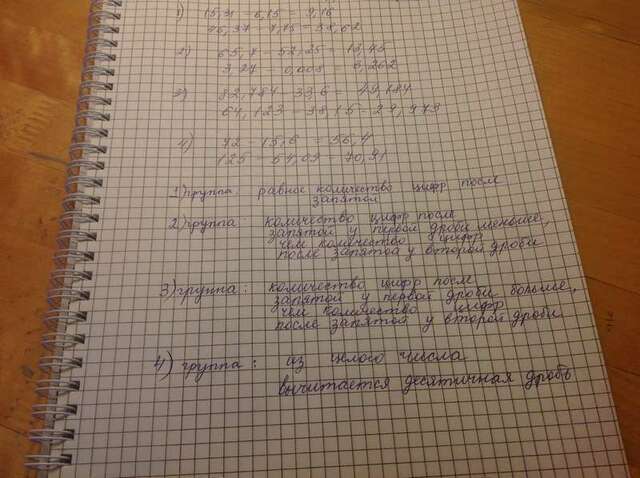 1) 15,31 - 6,15 = 9,16
65,7 - 52,25 = 13,45
2)
3,27 - 0,008 = 3,262
3) 82,784 - 33,6 = 49,184
64,123 - 38,15 = 29,973
4) 72 - 15,6 = 56,4
125 - 54,09 = 70,91
1) группа: равное количество цифр после
запятой
2) группа: количество цифр после
запятой у первой дроби меньше,
чем количество цифр
после запятой у второй дроби
3) группа: количество цифр после
запятой у первой дроби больше,
чем количество цифр
после запятой у второй дроби
4) группа: из целого числа
вычитается десятичная дробь